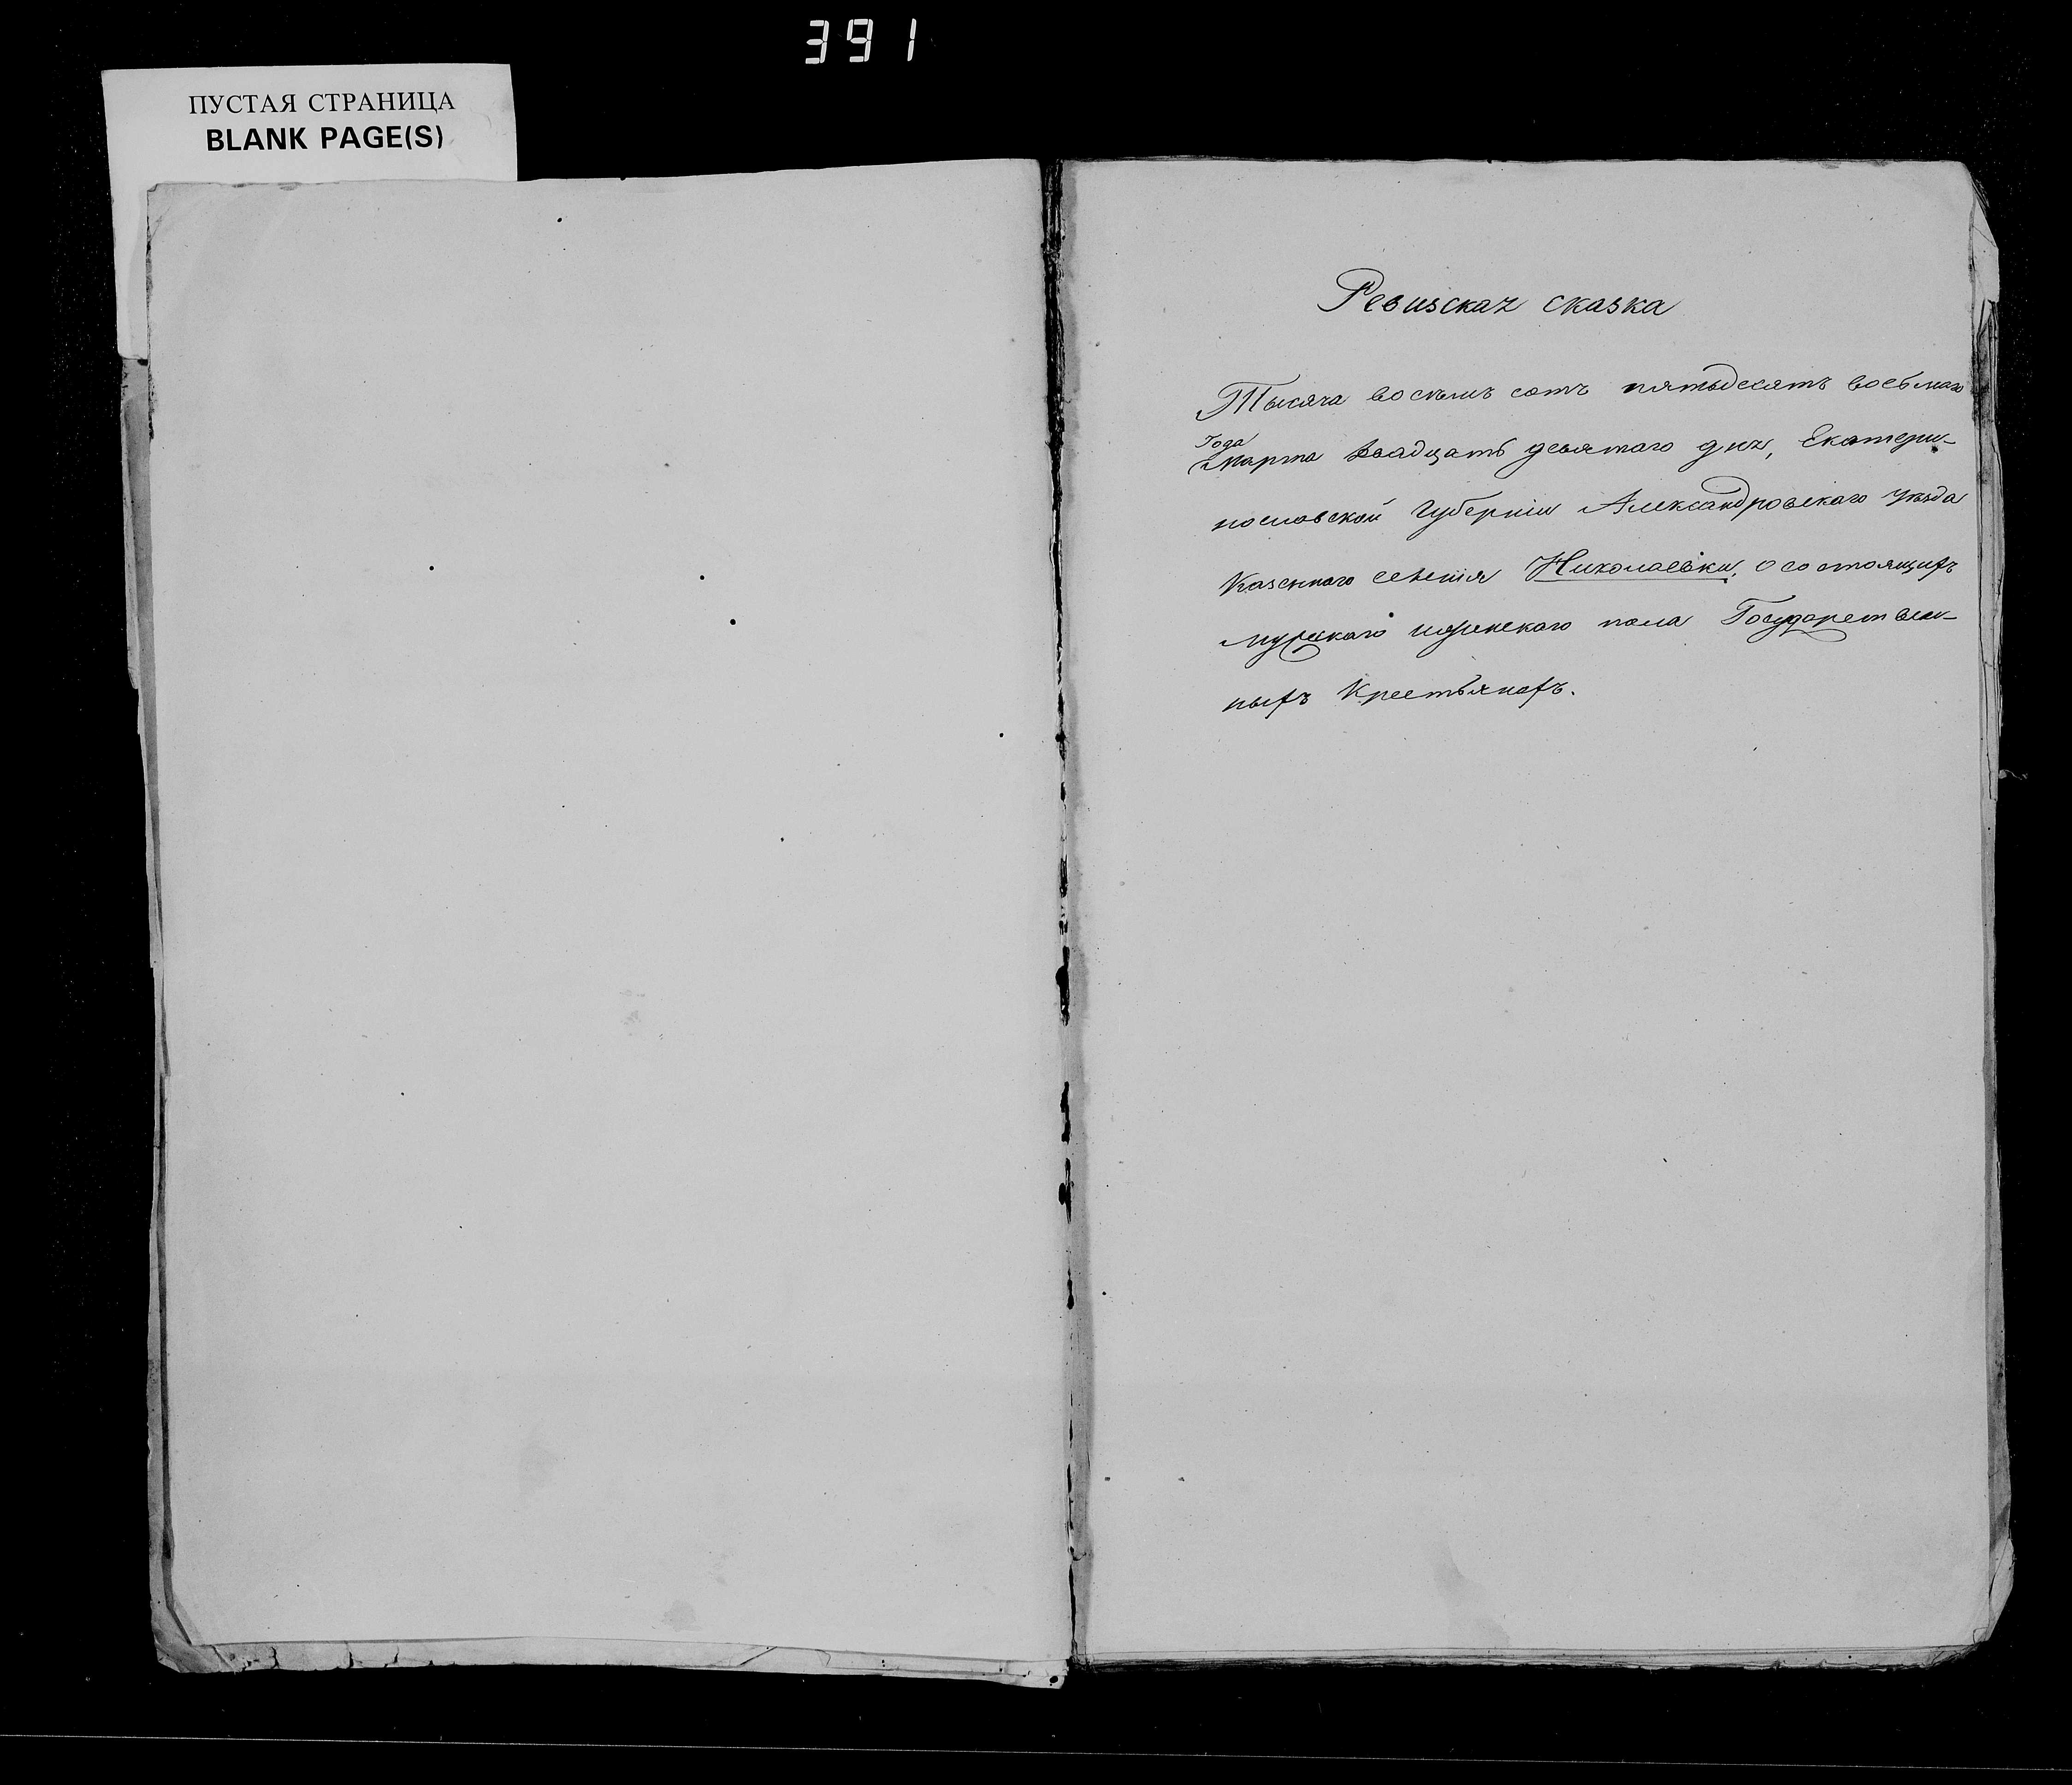 391
ПУСТАЯ СТРАНИЦА
BLANK PAGE(S)
Ревизская сказка
Тысяча восемь сотъ пятьдесятъ восьмаго
Года
Марта двадцать девятаго дня, Екатери-
нославской Губерніи Александровскаго уѣзда
Казеннаго селенія Николаевки, о состоящихъ
мужскаго и женскаго пола Государствен-
ныхъ Крестьянахъ.